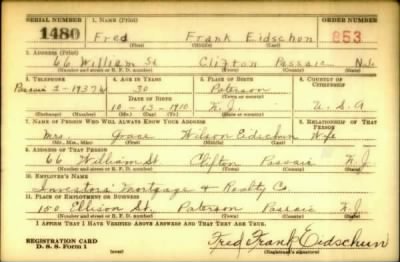 SERIAL NUMBER 1. NAME (Print) ORDER NUMBER
1480 Fred Frank Eidschun 853
(First) (Middle) (Last)
2. ADDRESS (Print)
66 William St Clifton Passaic N.J.
(Number and street or R. F. D. number) (Town) (County) (State)
3. TELEPHONE 4. AGE IN YEARS 5. PLACE OF BIRTH 6. COUNTRY OF CITIZENSHIP
Passaic 2-1937 30 Paterson
DATE OF BIRTH (Town or county)
10-13-1910 N.J. U.S.A
(Mo.) (Day) (Yr.) (State or country)
7. NAME OF PERSON WHO WILL ALWAYS KNOW YOUR ADDRESS 8. RELATIONSHIP OF THAT PERSON
Mrs. Grace Wilson Eidschun Wife
(Mr., Mrs., Miss) (First) (Middle) (Last)
9. ADDRESS OF THAT PERSON
66 William St. Clifton Passaic N.J.
(Number and street or R. F. D. number) (Town) (County) (State)
10. EMPLOYER'S NAME
Investors' Mortgage & Realty Co.
11. PLACE OF EMPLOYMENT OR BUSINESS
150 Ellison St. Paterson Passaic N.J.
(Number and street or R. F. D. number) (Town) (County) (State)
I AFFIRM THAT I HAVE VERIFIED ABOVE ANSWERS AND THAT THEY ARE TRUE.
REGISTRATION CARD
D. S. S. Form 1 (over) Fred Frank Eidschun
(Registrant's signature)